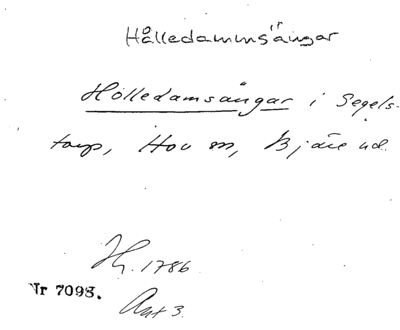 Hålledammsängar
Hölledamsängar i Segels-
torp, Hov sn, Bjäre hd.
Hh. 1786
Nr 7098.
Akt 3.